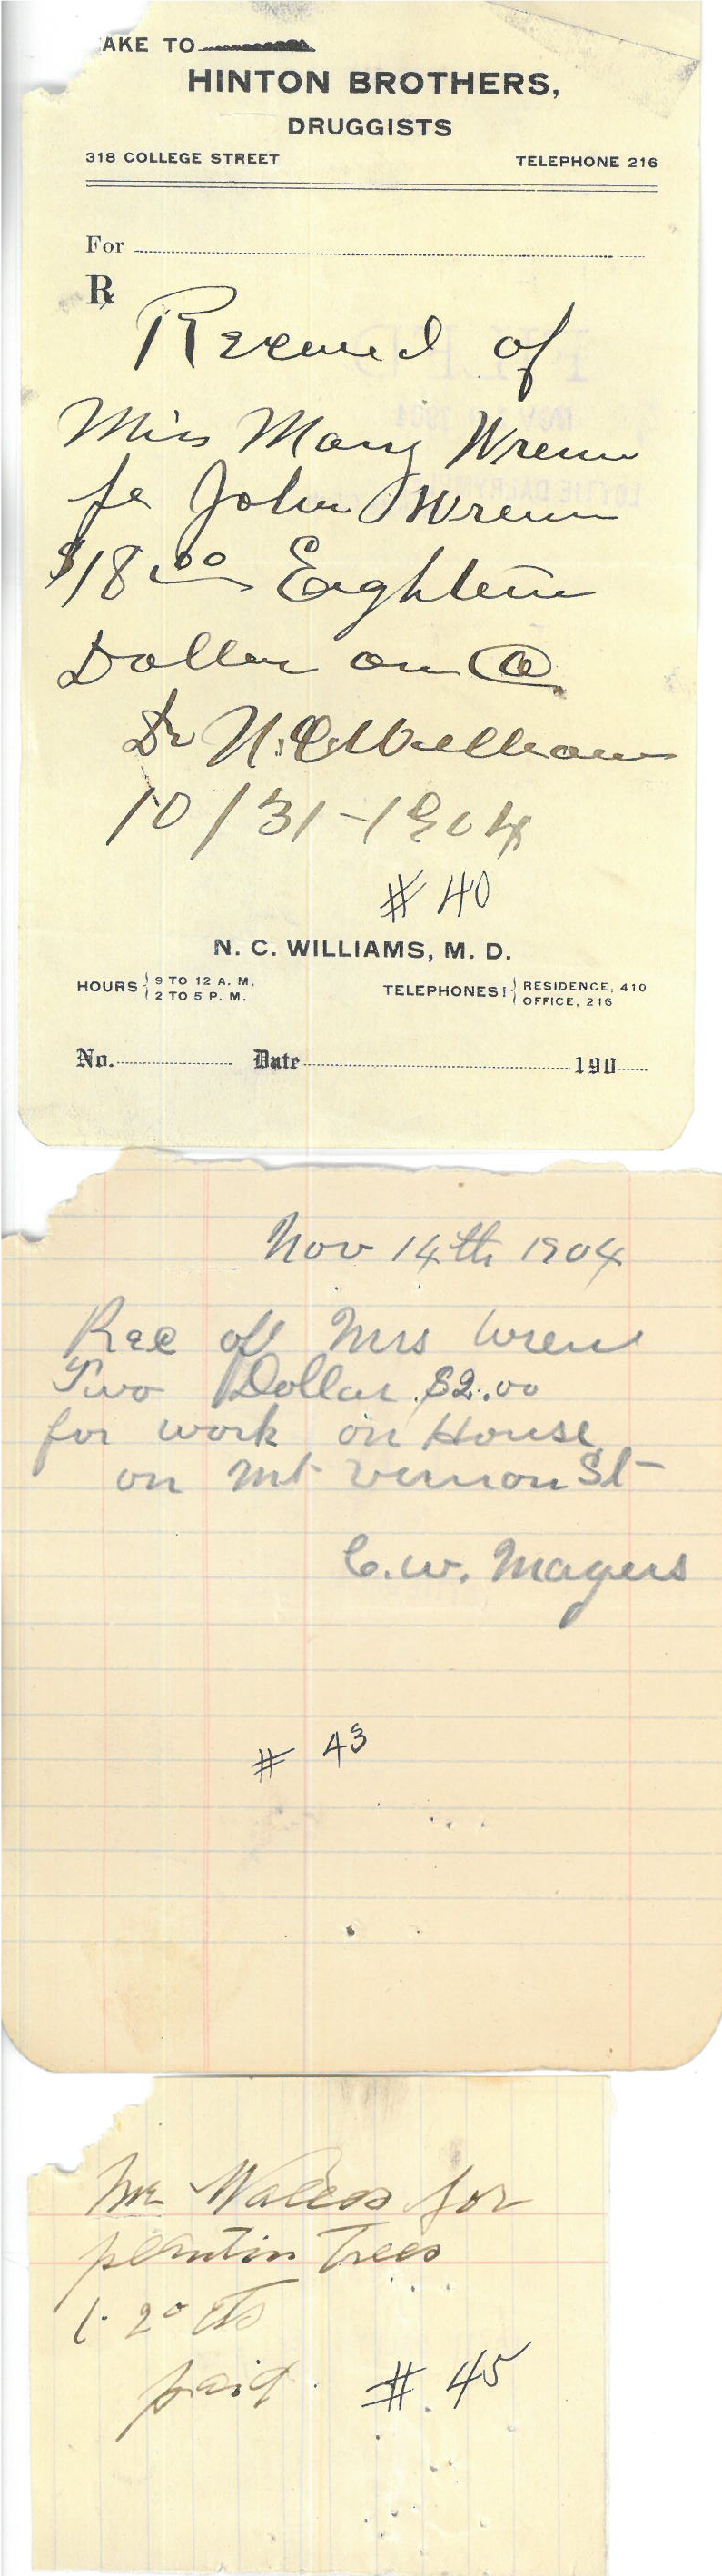 AKE TO
HINTON BROTHERS,
DRUGGISTS
318 COLLEGE STREET TELEPHONE 216
For
℞
Received of
Miss Mary Wrenn
fe John Wrenn
$18.00 Eighteen
Dollar on
Dr N.C. Williams
10/31-1904
# 40
N. C. WILLIAMS, M. D.
HOURS { 9 TO 12 A. M. TELEPHONES! { RESIDENCE, 410
2 TO 5 P. M. OFFICE, 216
No. Date 190
Nov 14th 1904
Rec of Mrs Wren
Two Dollar $2.00
for work on House
on Mt Vernon St
C.W. Magers
# 43
for
plantin Trees
1.20 cts
paid. # 45